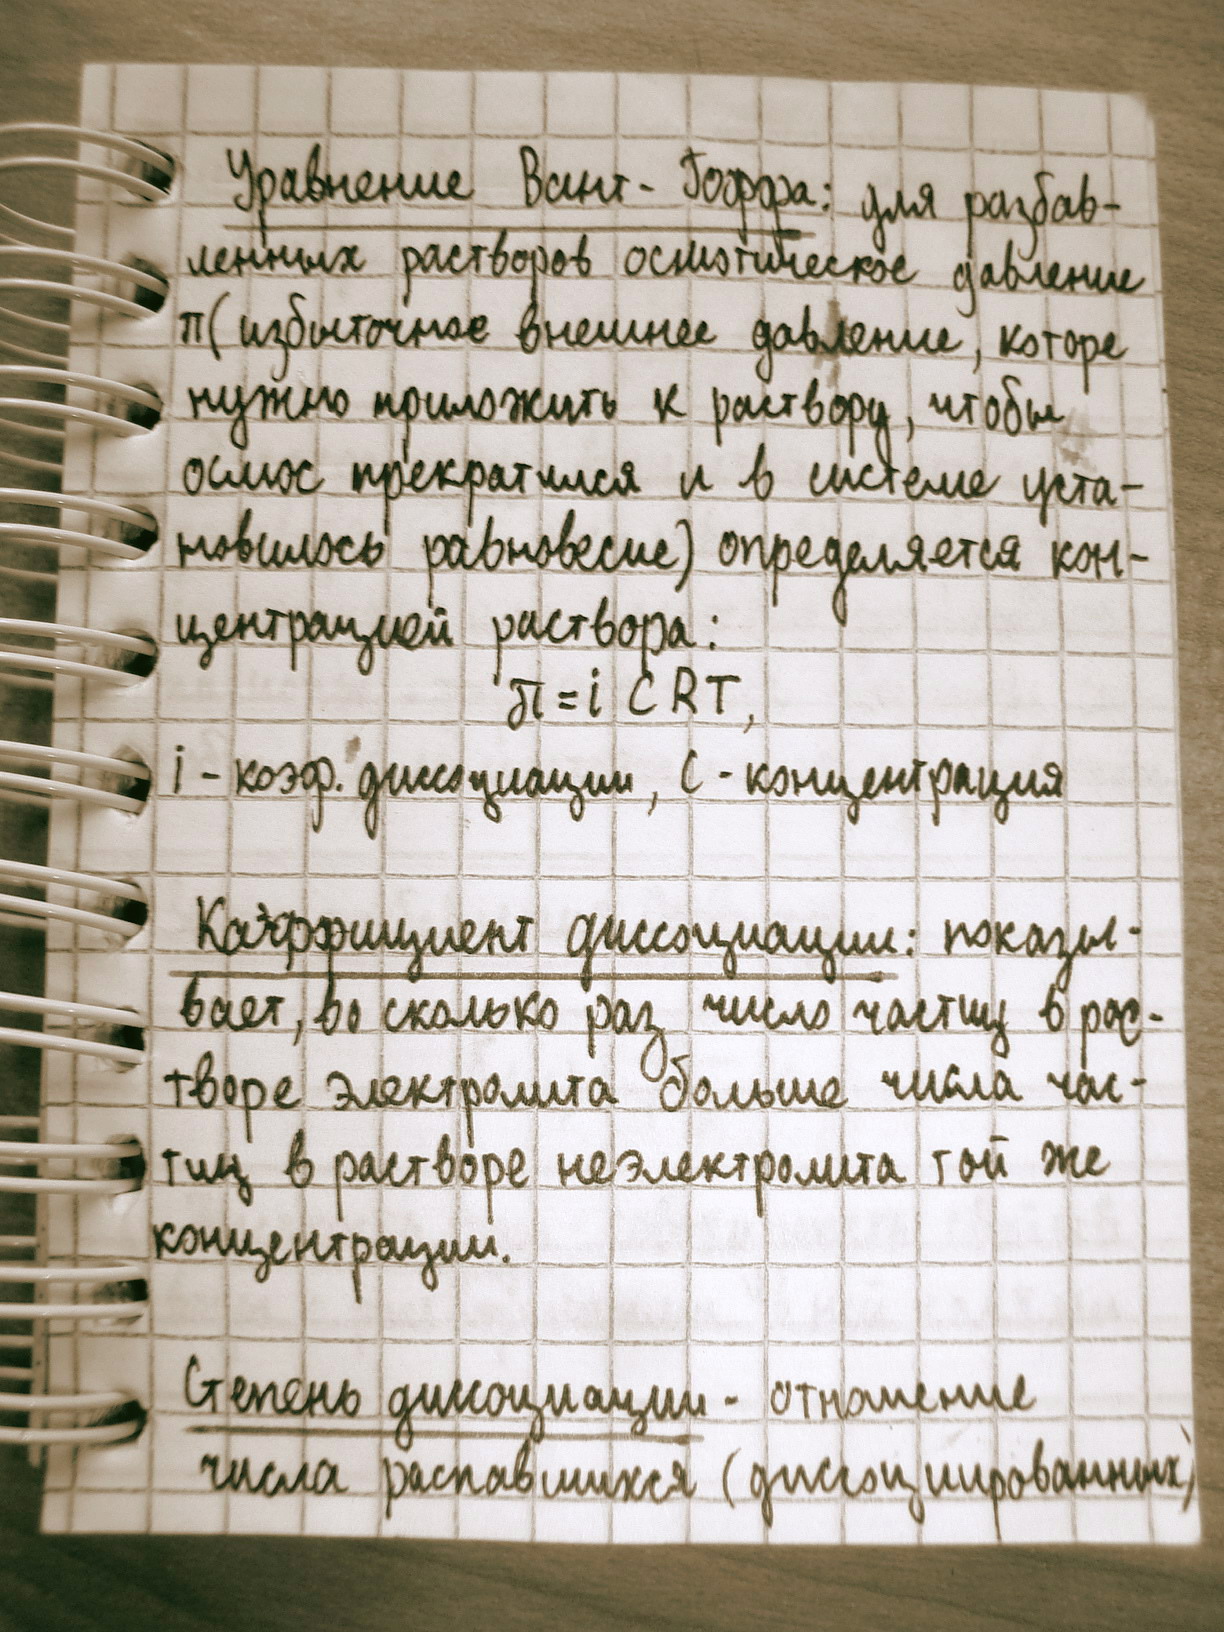 Уравнение Вант-Гоффа: для разбав-
ленных растворов осмотическое давление
π (избыточное внешнее давление, которе
нужно приложить к раствору, чтобы
осмос прекратился и в системе уста-
новилось равновесие) определяется кон-
центрацией раствора:
π = i C R T,
i - коэф. диссоциации, C - концентрация
Коэффициент диссоциации: показы-
вает, во сколько раз число частиц в рас-
творе электролита больше числа час-
тиц в растворе неэлектролита той же
концентрации.
Степень диссоциации - отношение
числа распавшихся (диссоциированных)